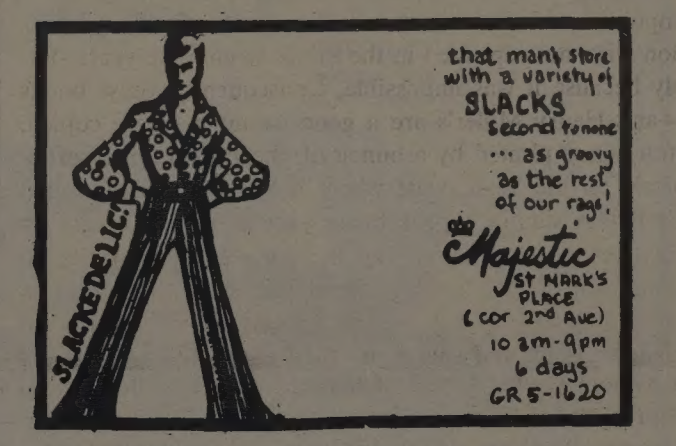 that man's store
with a variety of
SLACKS
Second to none
... as groovy
as the rest
of our rags!
Majestic
ST MARK'S
PLACE
(cor 2nd Ave)
10 am-9pm
6 days
GR 5-1620
SLACKEDELIC!